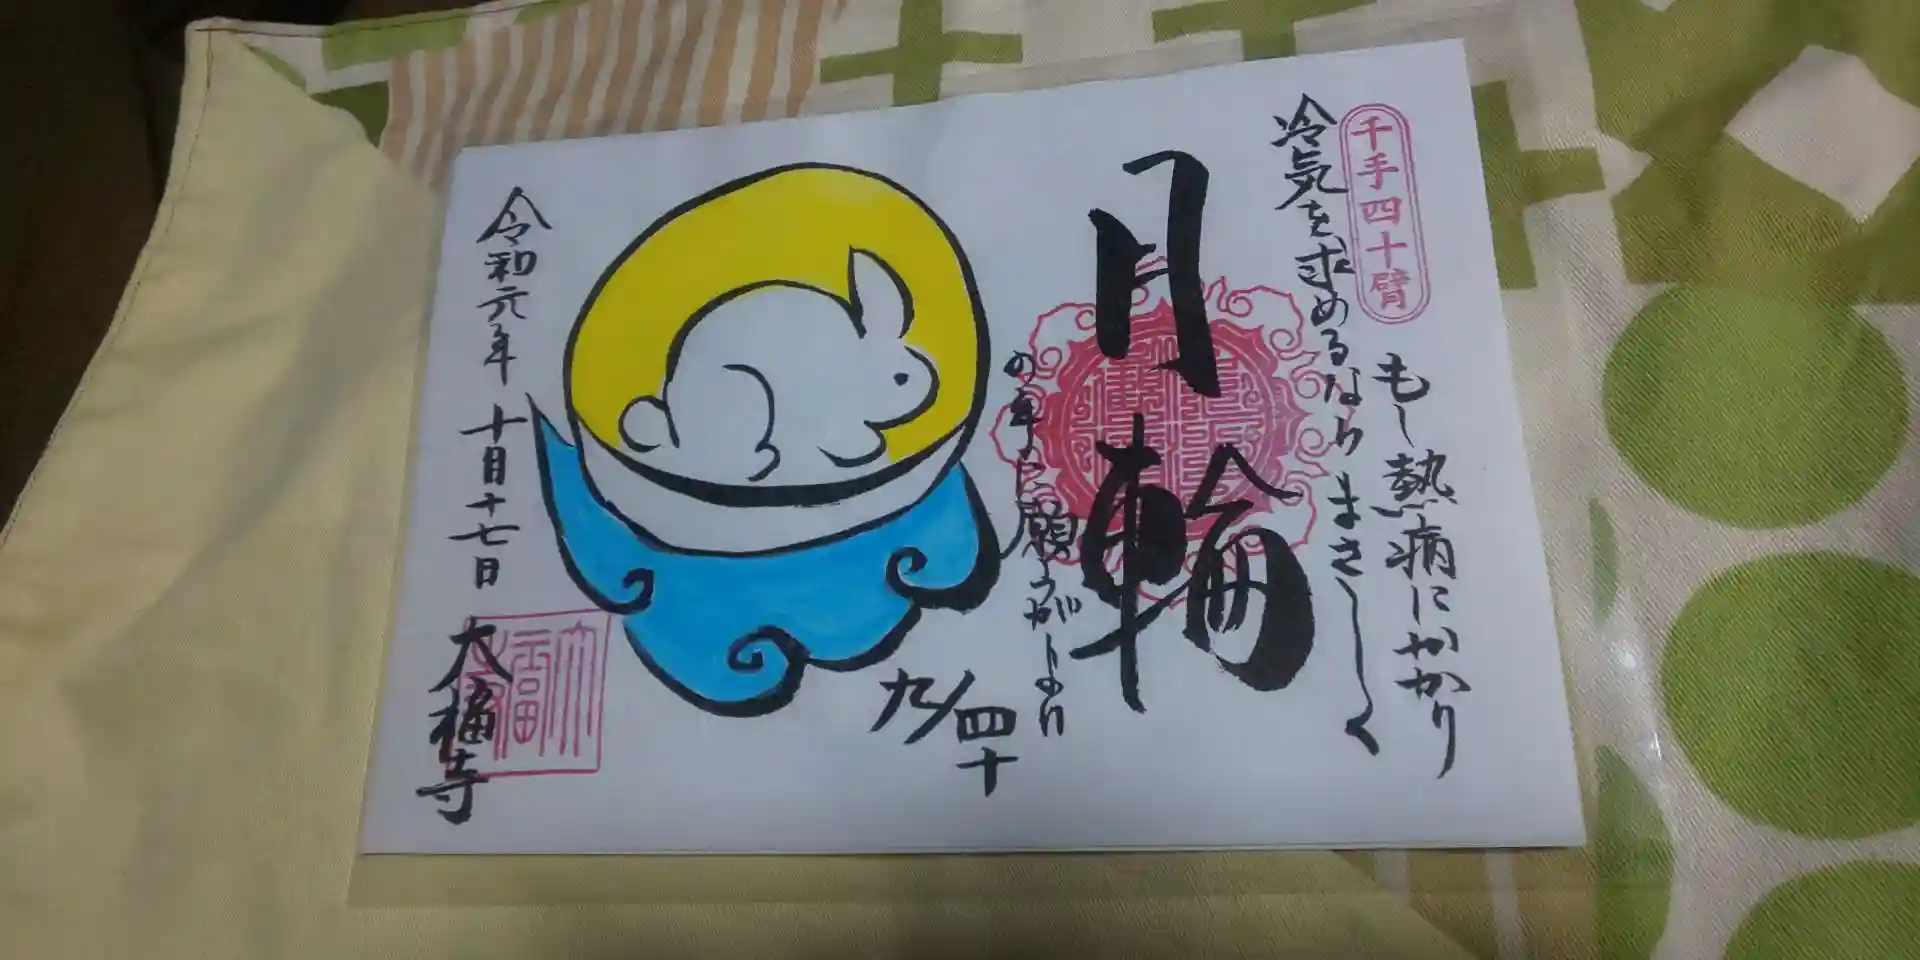 千手四十臂
もし熱病にかかり
冷気を求めるなら まさしく
月輪
の年に願うがよい
九/四十
令和元年 十月十七日
大福寺